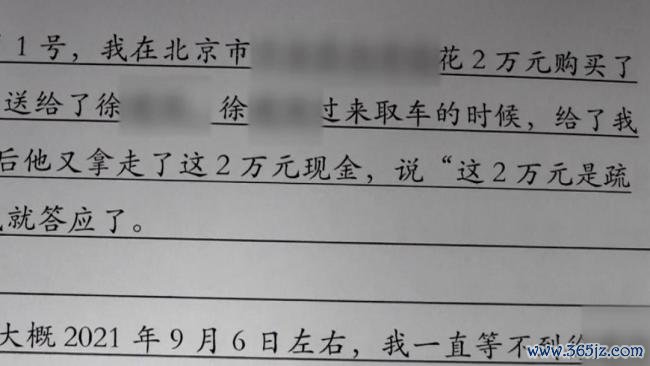 1号，我在北京市 花2万元购买了
送给了徐 徐 过来取车的时候，给了我
后他又拿走了这2万元现金，说“这2万元是疏
就答应了。
大概2021年9月6日左右，我一直等不到
www.365jz.com